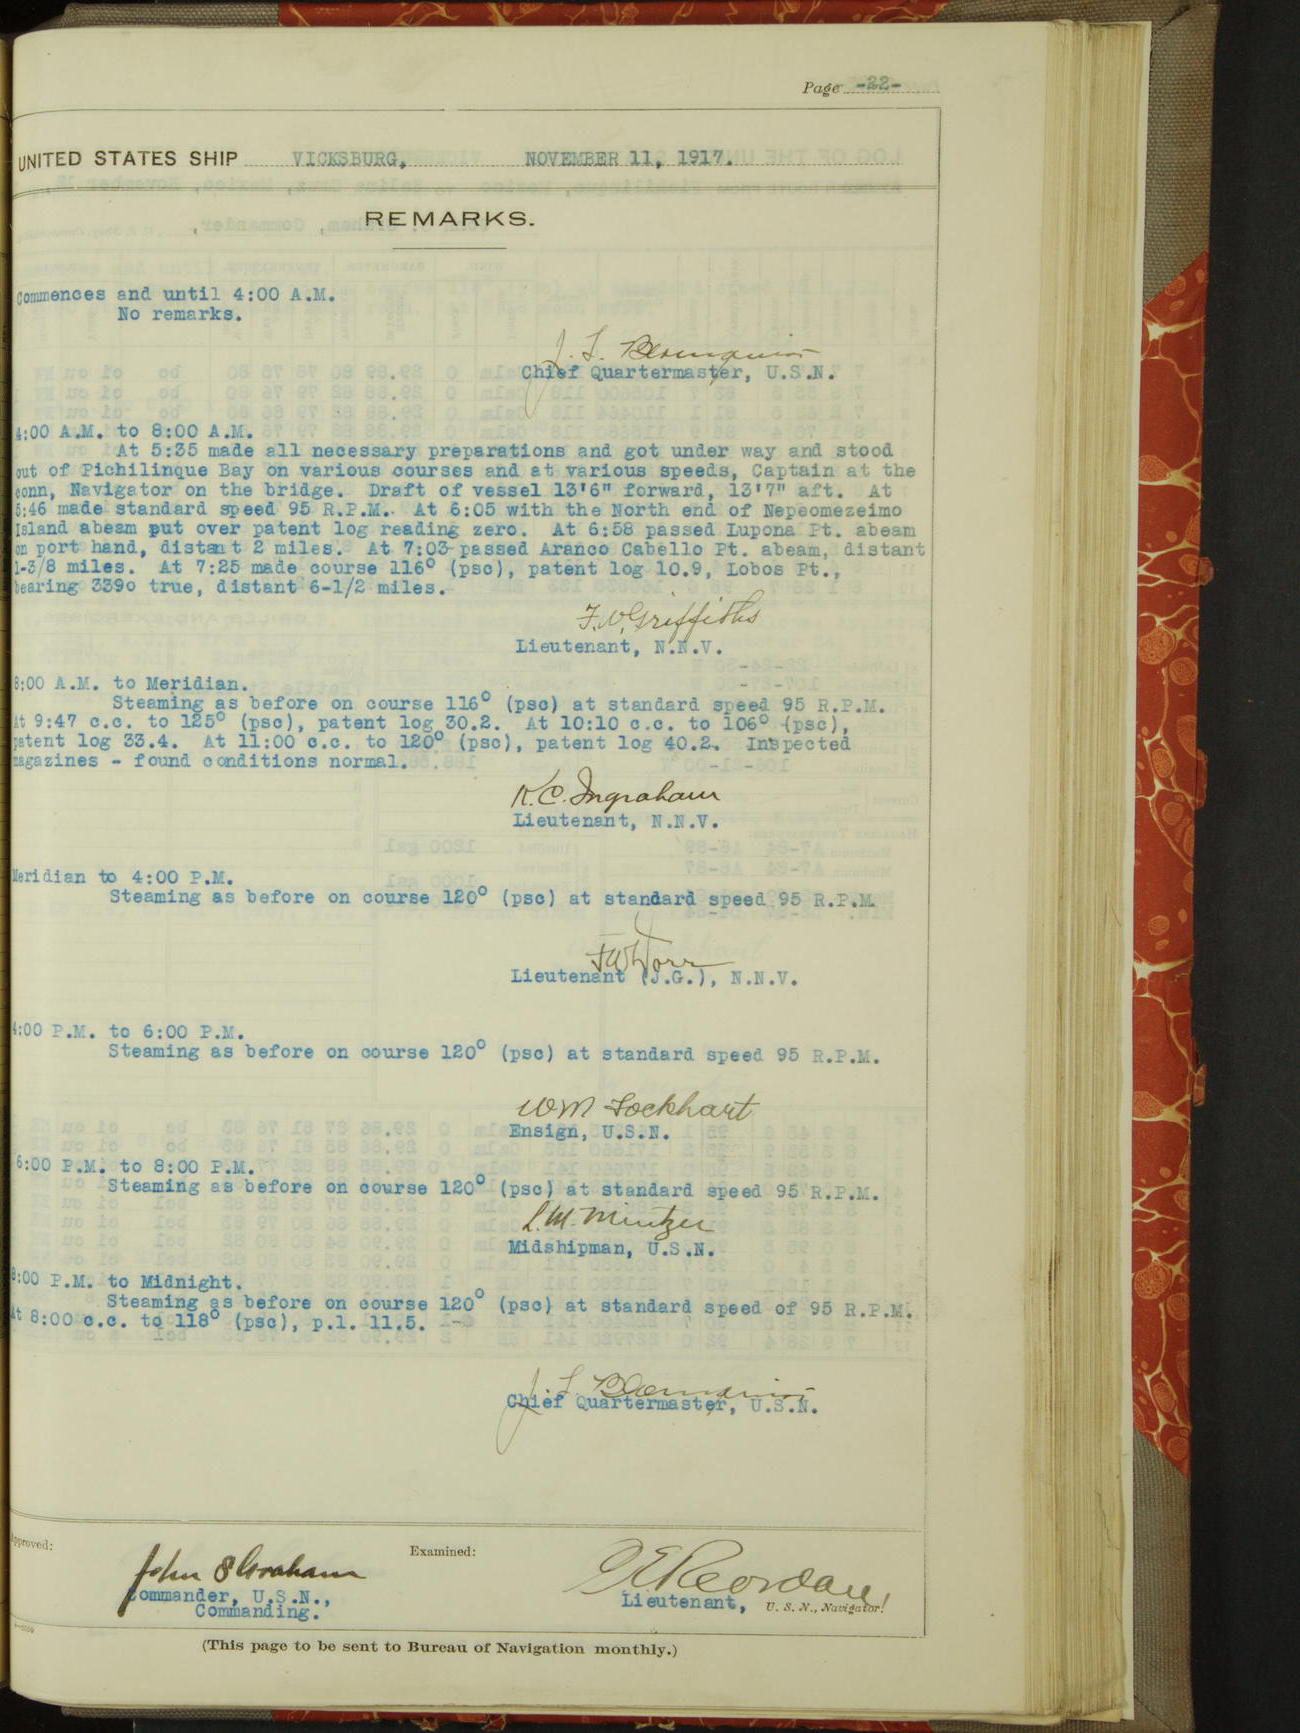 Page -22-
UNITED STATES SHIP VICKSBURG, NOVEMBER 11, 1917.
REMARKS.
Commences and until 4:00 A.M.
No remarks.
J. L.
Chief Quartermaster, U.S.N.
4:00 A.M. to 8:00 A.M.
At 5:35 made all necessary preparations and got under way and stood
out of Pichilinque Bay on various courses and at various speeds, Captain at the
conn, Navigator on the bridge. Draft of vessel 13'6" forward, 13'7" aft. At
5:46 made standard speed 95 R.P.M. At 6:05 with the North end of Nepeomezeimo
Island abeam put over patent log reading zero. At 6:58 passed Lupona Pt. abeam
on port hand, distant 2 miles. At 7:03 passed Aranco Cabello Pt. abeam, distant
1-3/8 miles. At 7:25 made course 116° (psc), patent log 10.9, Lobos Pt.,
bearing 339o true, distant 6-1/2 miles.
F.W. Griffiths
Lieutenant, N.N.V.
8:00 A.M. to Meridian.
Steaming as before on course 116° (psc) at standard speed 95 R.P.M.
At 9:47 c.c. to 125° (psc), patent log 30.2. At 10:10 c.c. to 106° (psc),
patent log 33.4. At 11:00 c.c. to 120° (psc), patent log 40.2. Inspected
magazines - found conditions normal.
R.C. Ingraham
Lieutenant, N.N.V.
Meridian to 4:00 P.M.
Steaming as before on course 120° (psc) at standard speed 95 R.P.M
F W Dorr
Lieutenant (J.G.), N.N.V.
4:00 P.M. to 6:00 P.M.
Steaming as before on course 120° (psc) at standard speed 95 R.P.M.
WM Lockhart
Ensign, U.S.N.
6:00 P.M. to 8:00 P.M.
Steaming as before on course 120° (psc) at standard speed 95 R.P.M.
L.M. Mintzer
Midshipman, U.S.N.
8:00 P.M. to Midnight.
Steaming as before on course 120° (psc) at standard speed of 95 R.P.M.
At 8:00 c.c. to 118° (psc), p.l. 11.5.
J. L.
Chief Quartermaster, U.S.N.
Approved: Examined:
John S Graham
Commander, U.S.N.,
Commanding.
Reordan
Lieutenant, U. S. N., Navigator.
(This page to be sent to Bureau of Navigation monthly.)